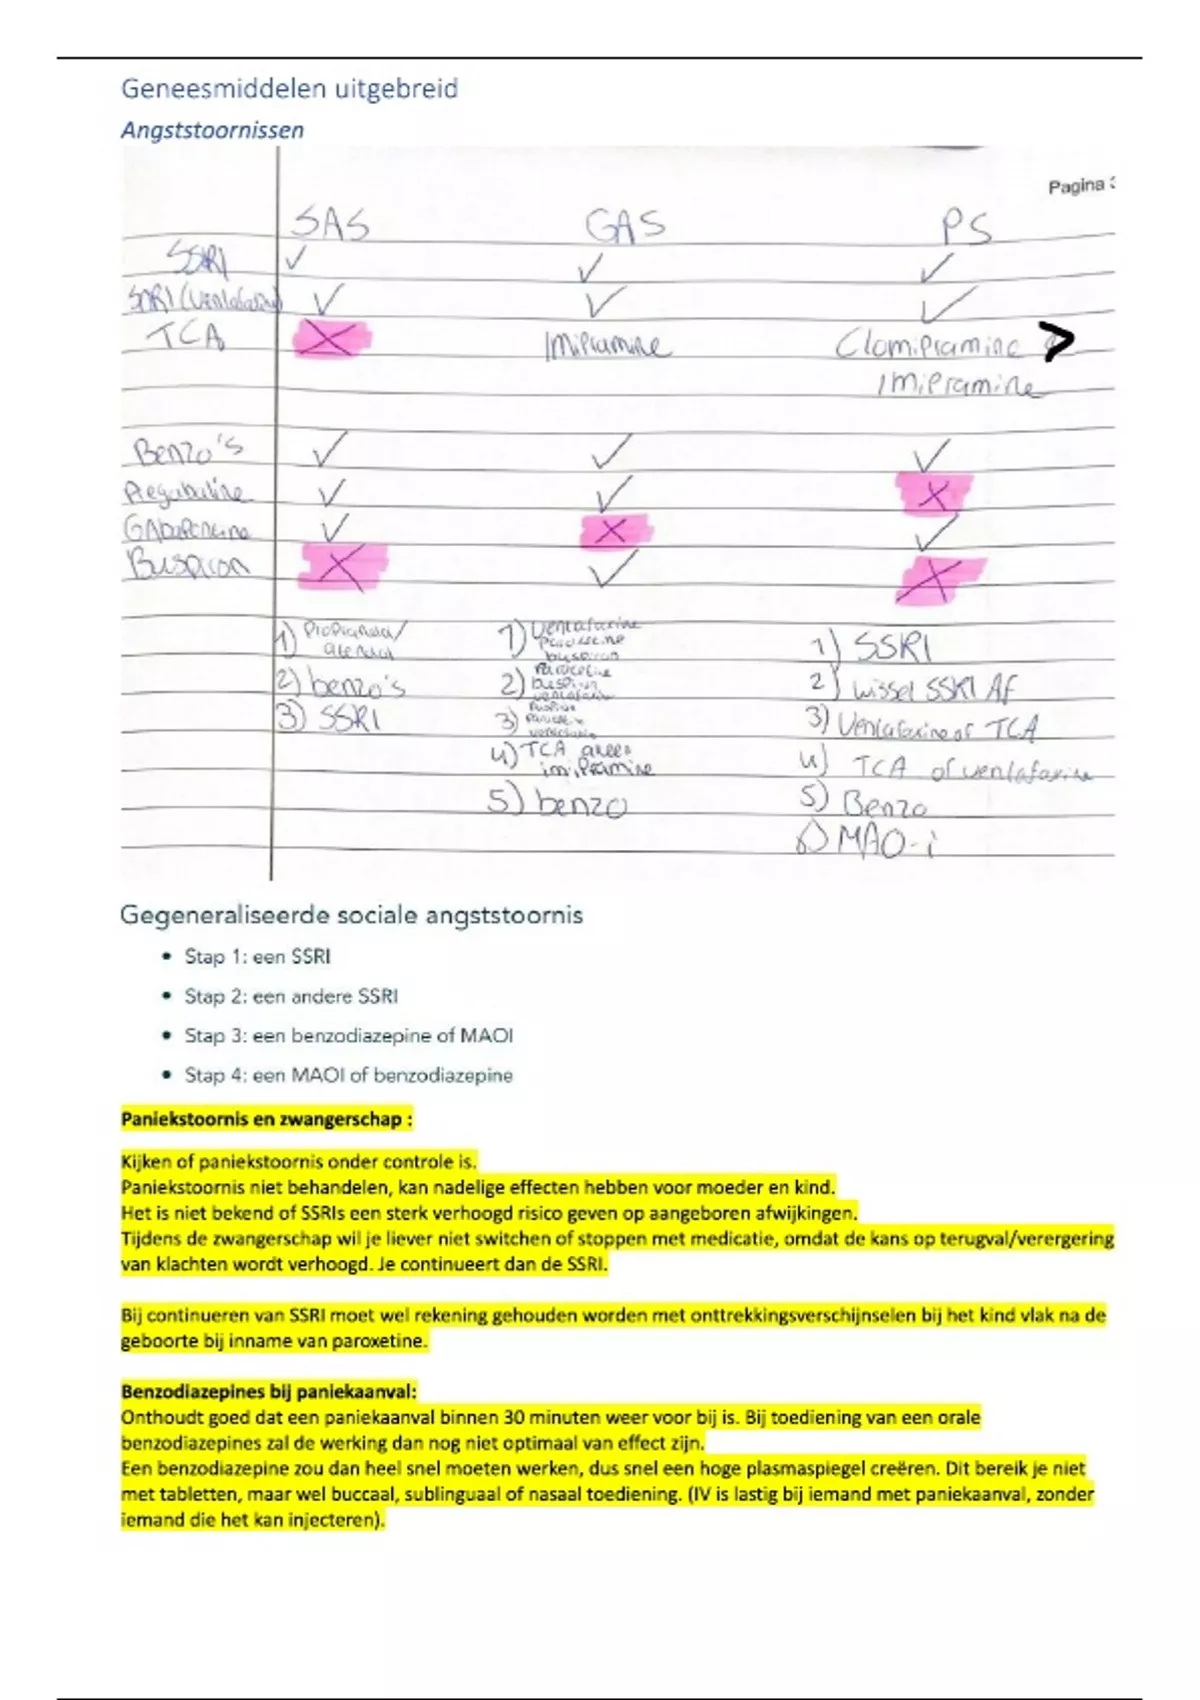 Geneesmiddelen uitgebreid
Angststoornissen
Pagina
SAS GAS PS
SSRI ✓ ✓ ✓
SNRI (Venlafaxine) ✓ ✓ ✓
TCA X Imipramine Clomipramine >
Imipramine
Benzo's ✓ ✓ ✓
Pregabaline ✓ ✓ X
GABApentine ✓ X ✓
Buspiron X ✓ X
1) Propranolol/
atenolol
2) benzo's
3) SSRI
1) Venlafaxine
Paroxetine
buspiron
2) Paroxetine
buspiron
venlafaxine
3) Buspiron
Paroxetine
venlafaxine
4) TCA alleen
imipramine
5) benzo
1) SSRI
2) wissel SSRI AF
3) Venlafaxine of TCA
4) TCA of venlafaxine
5) Benzo
6) MAO-i
Gegeneraliseerde sociale angststoornis
• Stap 1: een SSRI
• Stap 2: een andere SSRI
• Stap 3: een benzodiazepine of MAOI
• Stap 4: een MAOI of benzodiazepine
Paniekstoornis en zwangerschap :
Kijken of paniekstoornis onder controle is.
Paniekstoornis niet behandelen, kan nadelige effecten hebben voor moeder en kind.
Het is niet bekend of SSRIs een sterk verhoogd risico geven op aangeboren afwijkingen.
Tijdens de zwangerschap wil je liever niet switchen of stoppen met medicatie, omdat de kans op terugval/verergering
van klachten wordt verhoogd. Je continueert dan de SSRI.
Bij continueren van SSRI moet wel rekening gehouden worden met onttrekkingsverschijnselen bij het kind vlak na de
geboorte bij inname van paroxetine.
Benzodiazepines bij paniekaanval:
Onthoudt goed dat een paniekaanval binnen 30 minuten weer voor bij is. Bij toediening van een orale
benzodiazepines zal de werking dan nog niet optimaal van effect zijn.
Een benzodiazepine zou dan heel snel moeten werken, dus snel een hoge plasmaspiegel creëren. Dit bereik je niet
met tabletten, maar wel buccaal, sublinguaal of nasaal toediening. (IV is lastig bij iemand met paniekaanval, zonder
iemand die het kan injecteren).